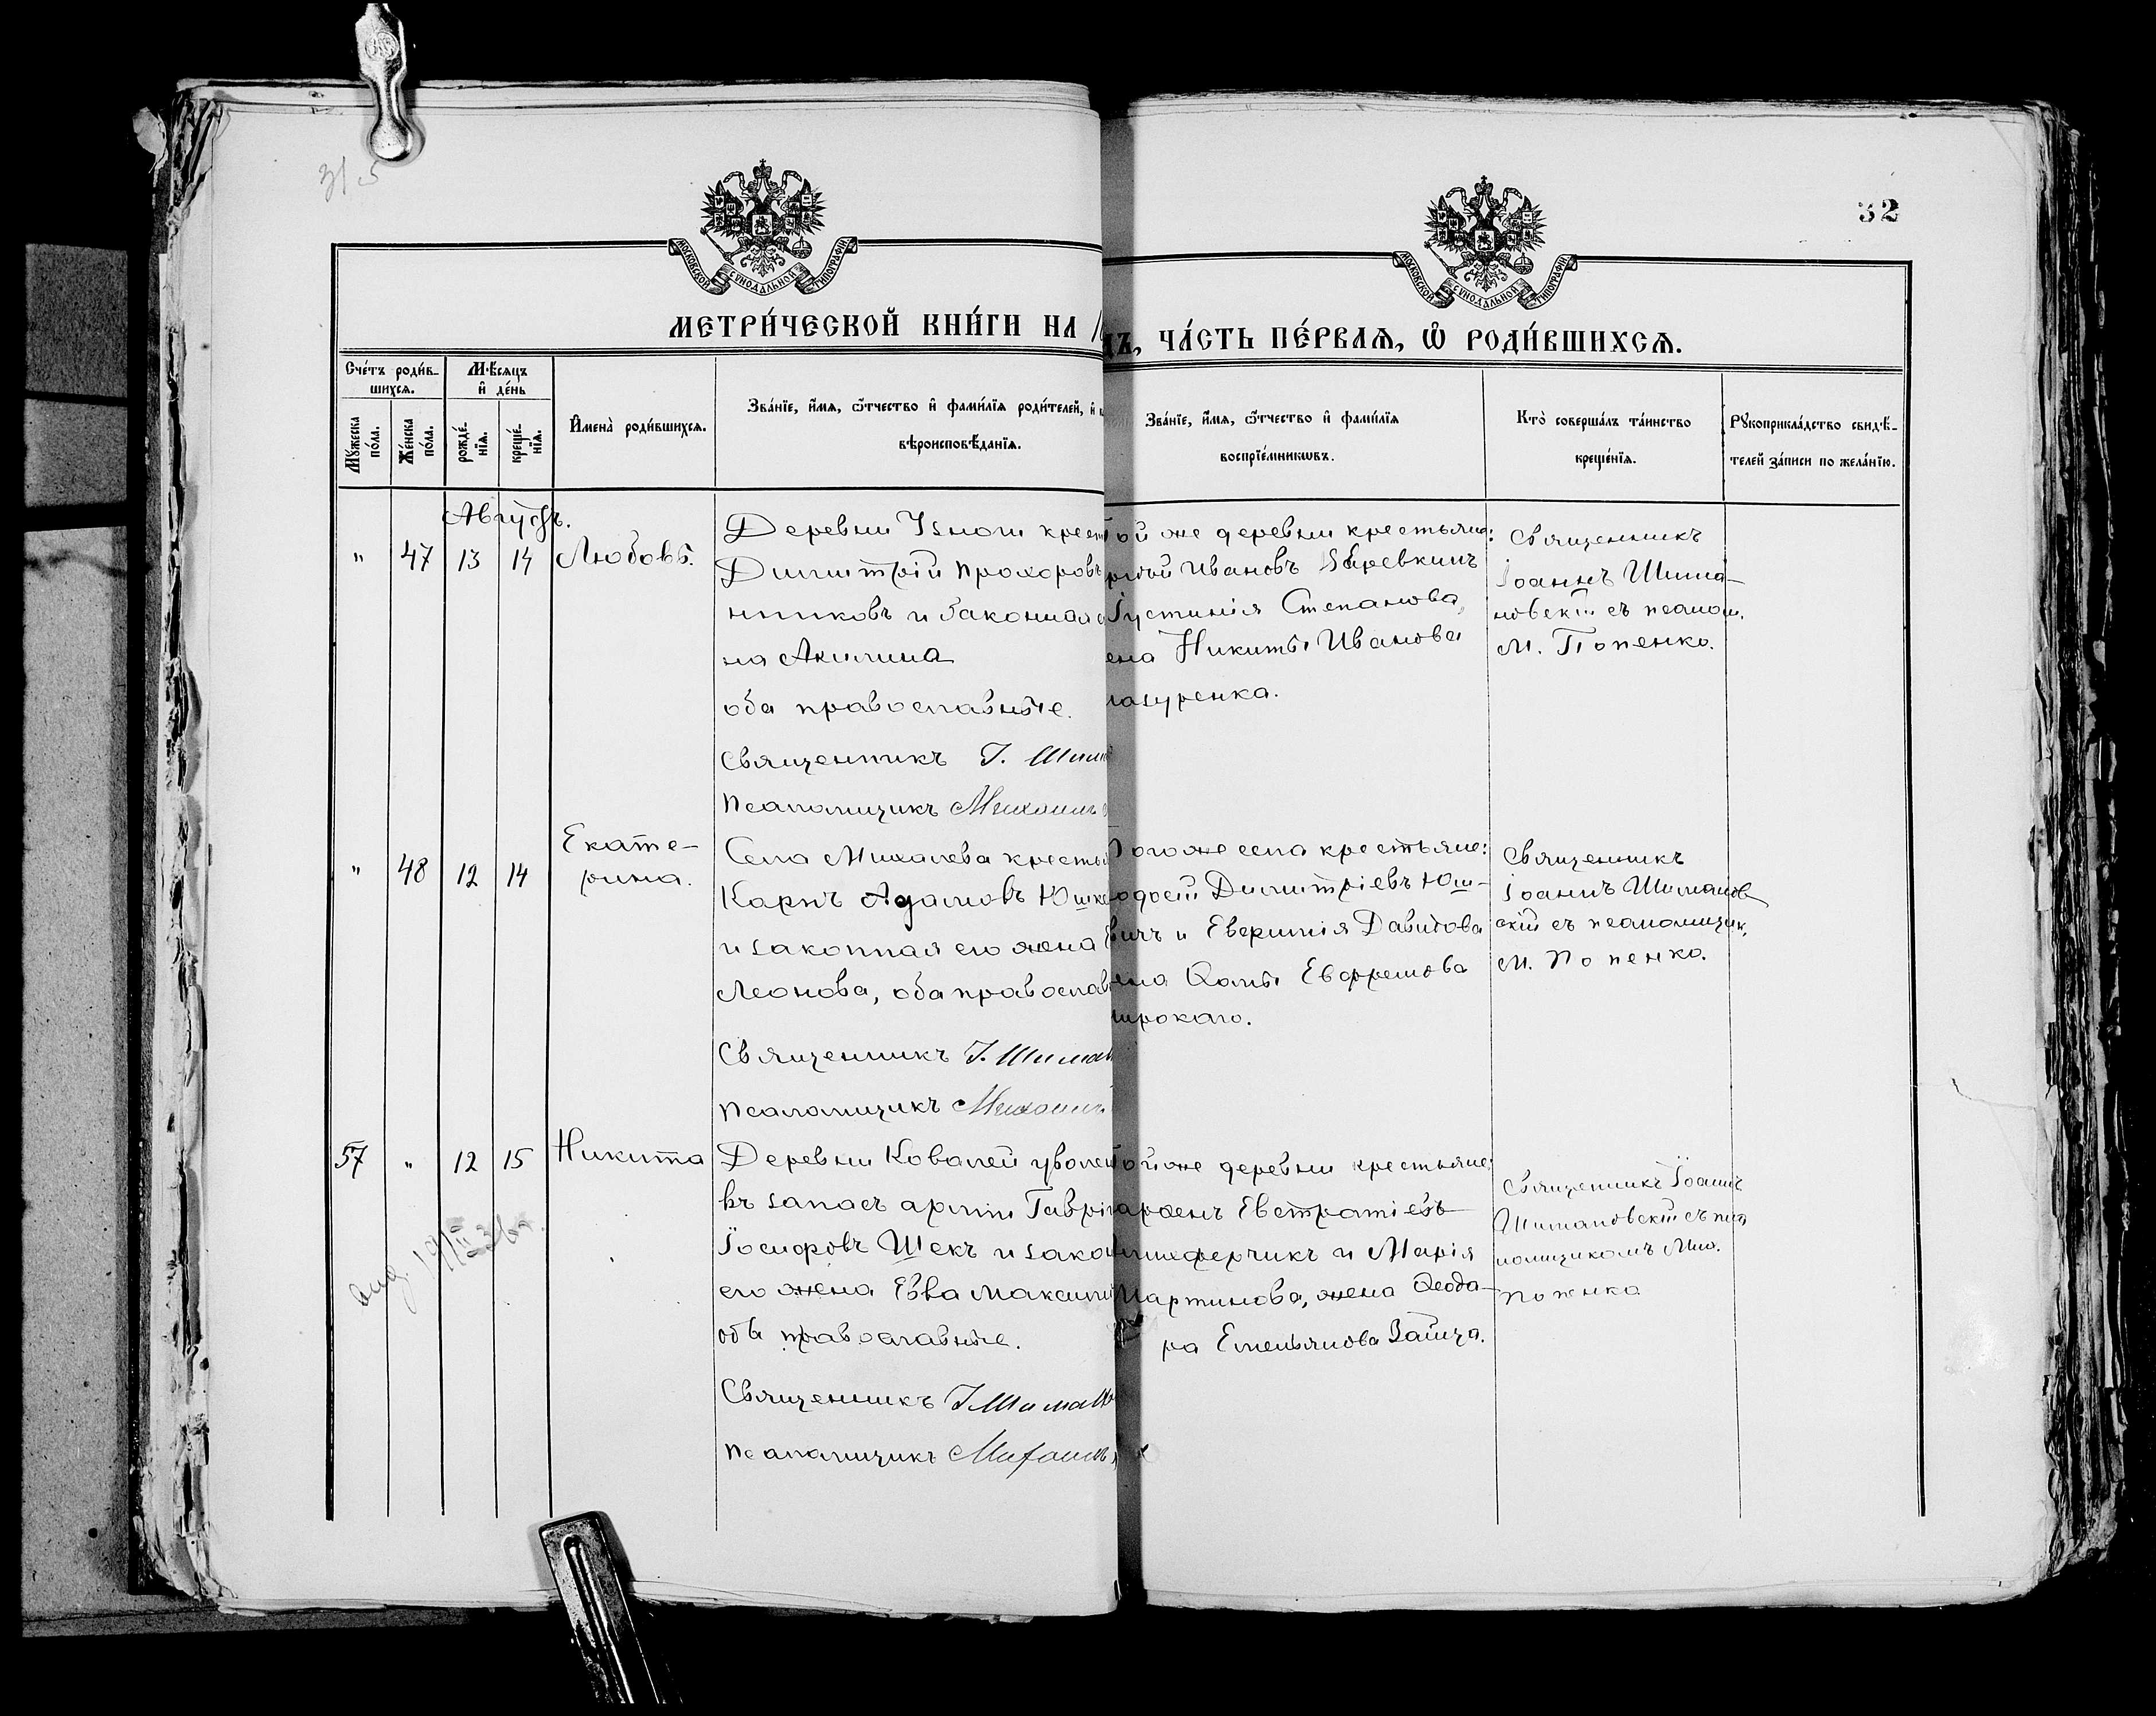 31 об
32
МОСКОВСКОЙ СѴНОДАЛЬНОЙ ТИПОГРАФІИ
МОСКОВСКОЙ СѴНОДАЛЬНОЙ ТИПОГРАФІИ
МЕТРИ́ЧЕСКОЙ КНИ́ГИ НА 1
дъ, ЧА́СТЬ ПЕ́РВАѦ, Ѡ҆ РОДИ́ВШИХСѦ.
Сче́тъ роди́в-
шихсѧ.
Мꙋ́жеска
по́ла.
Же́нска
по́ла.
Мѣ́сѧцъ
и҆ де́нь
рожде́-
нїѧ.
креще́-
нїѧ.
И҆мена̀ роди́вшихсѧ.
Зва́нїе, и҆́мѧ, ѻ҆́тчество и҆ фами́лїѧ роди́телей, и҆
вѣроисповѣ́данїѧ.
Зва́нїе, и҆́мѧ, ѻ҆́тчество и҆ фами́лїѧ
воспрїе́мникѡвъ.
Кто̀ соверша́лъ та́инство
креще́нїѧ.
Рꙋкоприкла́дство свидѣ́-
телей за́писи по жела́нїю.
Августъ.
" 47 13 14 Любовь.
Деревни Узноги крест
Димитрій Прохоровъ
никовъ и законная е
на Акилина
оба православные.
Священникъ І. Шим
Псаломщикъ Михаилъ
ой же деревни крестьяне:
Ивановъ
Іустинія Степанова,
ена Никиты Иванова
азуренка.
Священникъ
Іоаннъ Шима-
новскій съ псалом.
М. Попенко.
" 48 12 14 Екате-
рина.
Села Михалева крестья
Карпъ Адамовъ Юшке
и законная его жена
Леонова, оба православ
Священникъ І. Шиман
Псаломщикъ Михаилъ
Того же села крестьяне:
Димитріевъ Юш-
вичъ и Давидова
ена Ѳомы
ирокаго.
Священникъ
Іоаннъ Шиманов
скій съ псаломщик.
М. Попенко.
57 " 12 15 Никита
Деревни Ковалей уволен
въ запасъ арміи Гаврі
Іосифовъ Шекъ и закон
его жена Евва Максими
оба православные.
Священникъ І. Шиман
Псаломщикъ Михаилъ
ой же деревни крестьяне:
Евстратіевъ
и Марія
Мартинова, жена Ѳеодо-
ра Емельянова Зайца.
Священникъ Іоаннъ
Шимановскій съ пса
ломщикомъ Мих.
Попенко